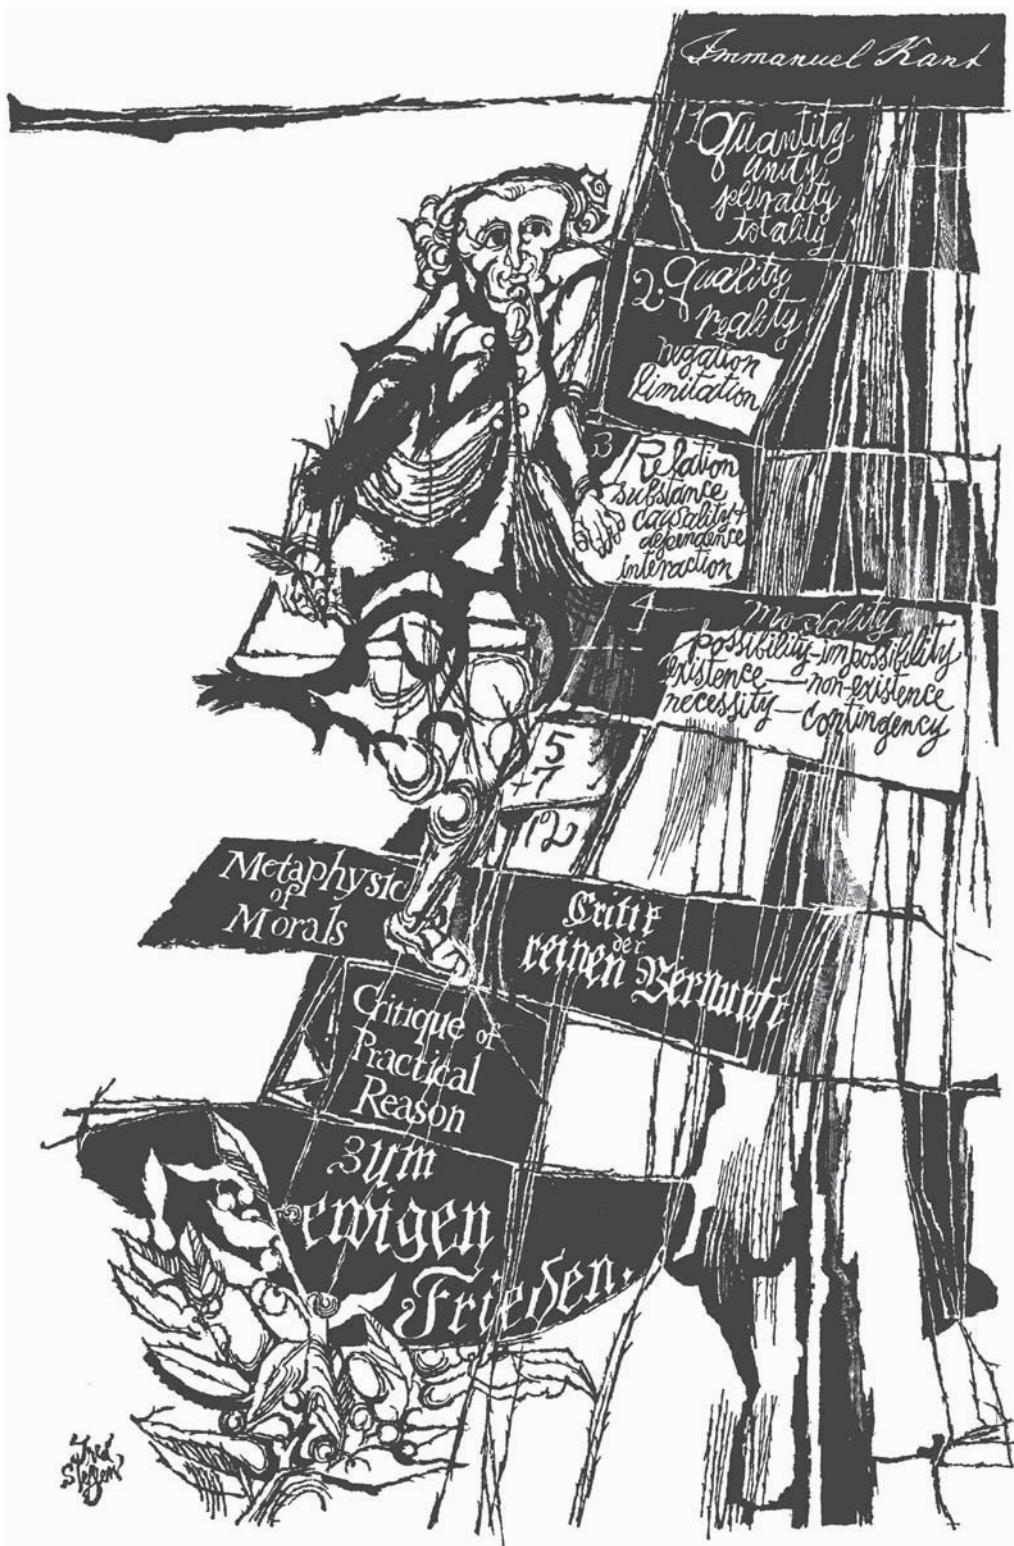 Immanuel Kant
1 Quantity
unity
plurality
totality
2. Quality
reality
negation
limitation
3 Relation
substance
causality +
dependence
interaction
4 Modality
possibility-impossibility
existence — non-existence
necessity — contingency
5
+7
12
Metaphysic
of
Morals
Critik
der
reinen Vernunft
Critique of
Practical
Reason
zum
ewigen
Frieden.